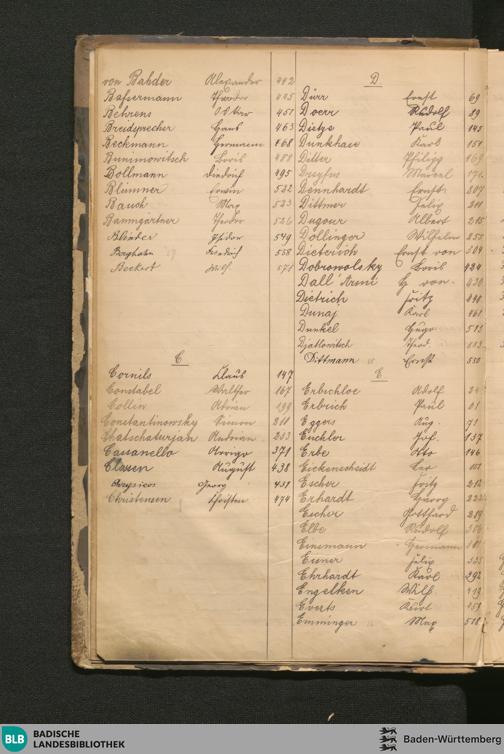 von Babder Alexander 442
Bassermann Theodor
Behrens Oskar 451
Breidsprecher Hans 463
Beckmann Hermann 468
Bunimowitsch Boris
Bollmann Diedrich 495
Blümner Erwin 522
Bauch Max 523
Baumgärtner Theodor 526
Bloeter Isidor 549
Berghahn Friedrich 558
Beckert Wilh. 571
C
Cornils Klaus 147
Constabel Walther 167
Collin Adrian 199
Constantinowsky Simon 211
Chatschaturjan 253
Cassanello Arrigo 371
Clasen August 438
Georg 451
Christensen Christian 474
D
Dürr Ernst 69
Doerr Rudolf 89
Dietze Paul 145
Dunkhase Karl 151
Ditter Philipp 169
Dreyfus Marcel 171
Dennhardt Ernst 207
Dittmer Felix 211
Dugour Albert 215
Döllinger Wilhelm 255
Dieterich Ernst von 304
Dobrowolsky Boris 424
Dall'Armi G von 430
Dietrich Fritz 440
Dunaj Karl 461
Dunkel Hugo 513
Djatlowitsch
Dittmann Ernst 550
E
Erbichloe Adolf
Erbrich Paul 61
Eggers Aug. 71
Euchler Jos. 137
Erbe Otto 146
Eickenscheidt Car
Escher Fritz 212
Erhardt Georg 222
Escher Gotthard 259
Elbe Rudolf
Einsmann Hermann
Eisner Felix
Ehrhardt Karl 292
Engelken Wilh. 419
Everts Kurt 451
Emminger Max 518
BLB BADISCHE
LANDESBIBLIOTHEK
Baden-Württemberg